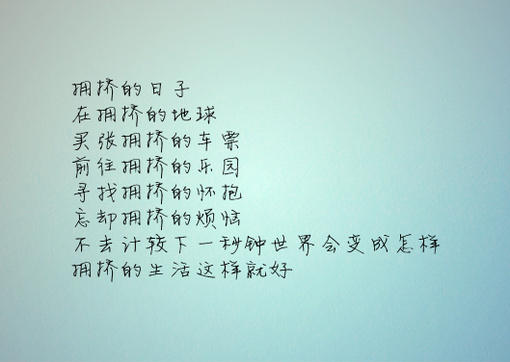 拥挤的日子
在拥挤的地球
买张拥挤的车票
前往拥挤的乐园
寻找拥挤的怀抱
忘却拥挤的烦恼
不去计较下一秒钟世界会变成怎样
拥挤的生活这样就好